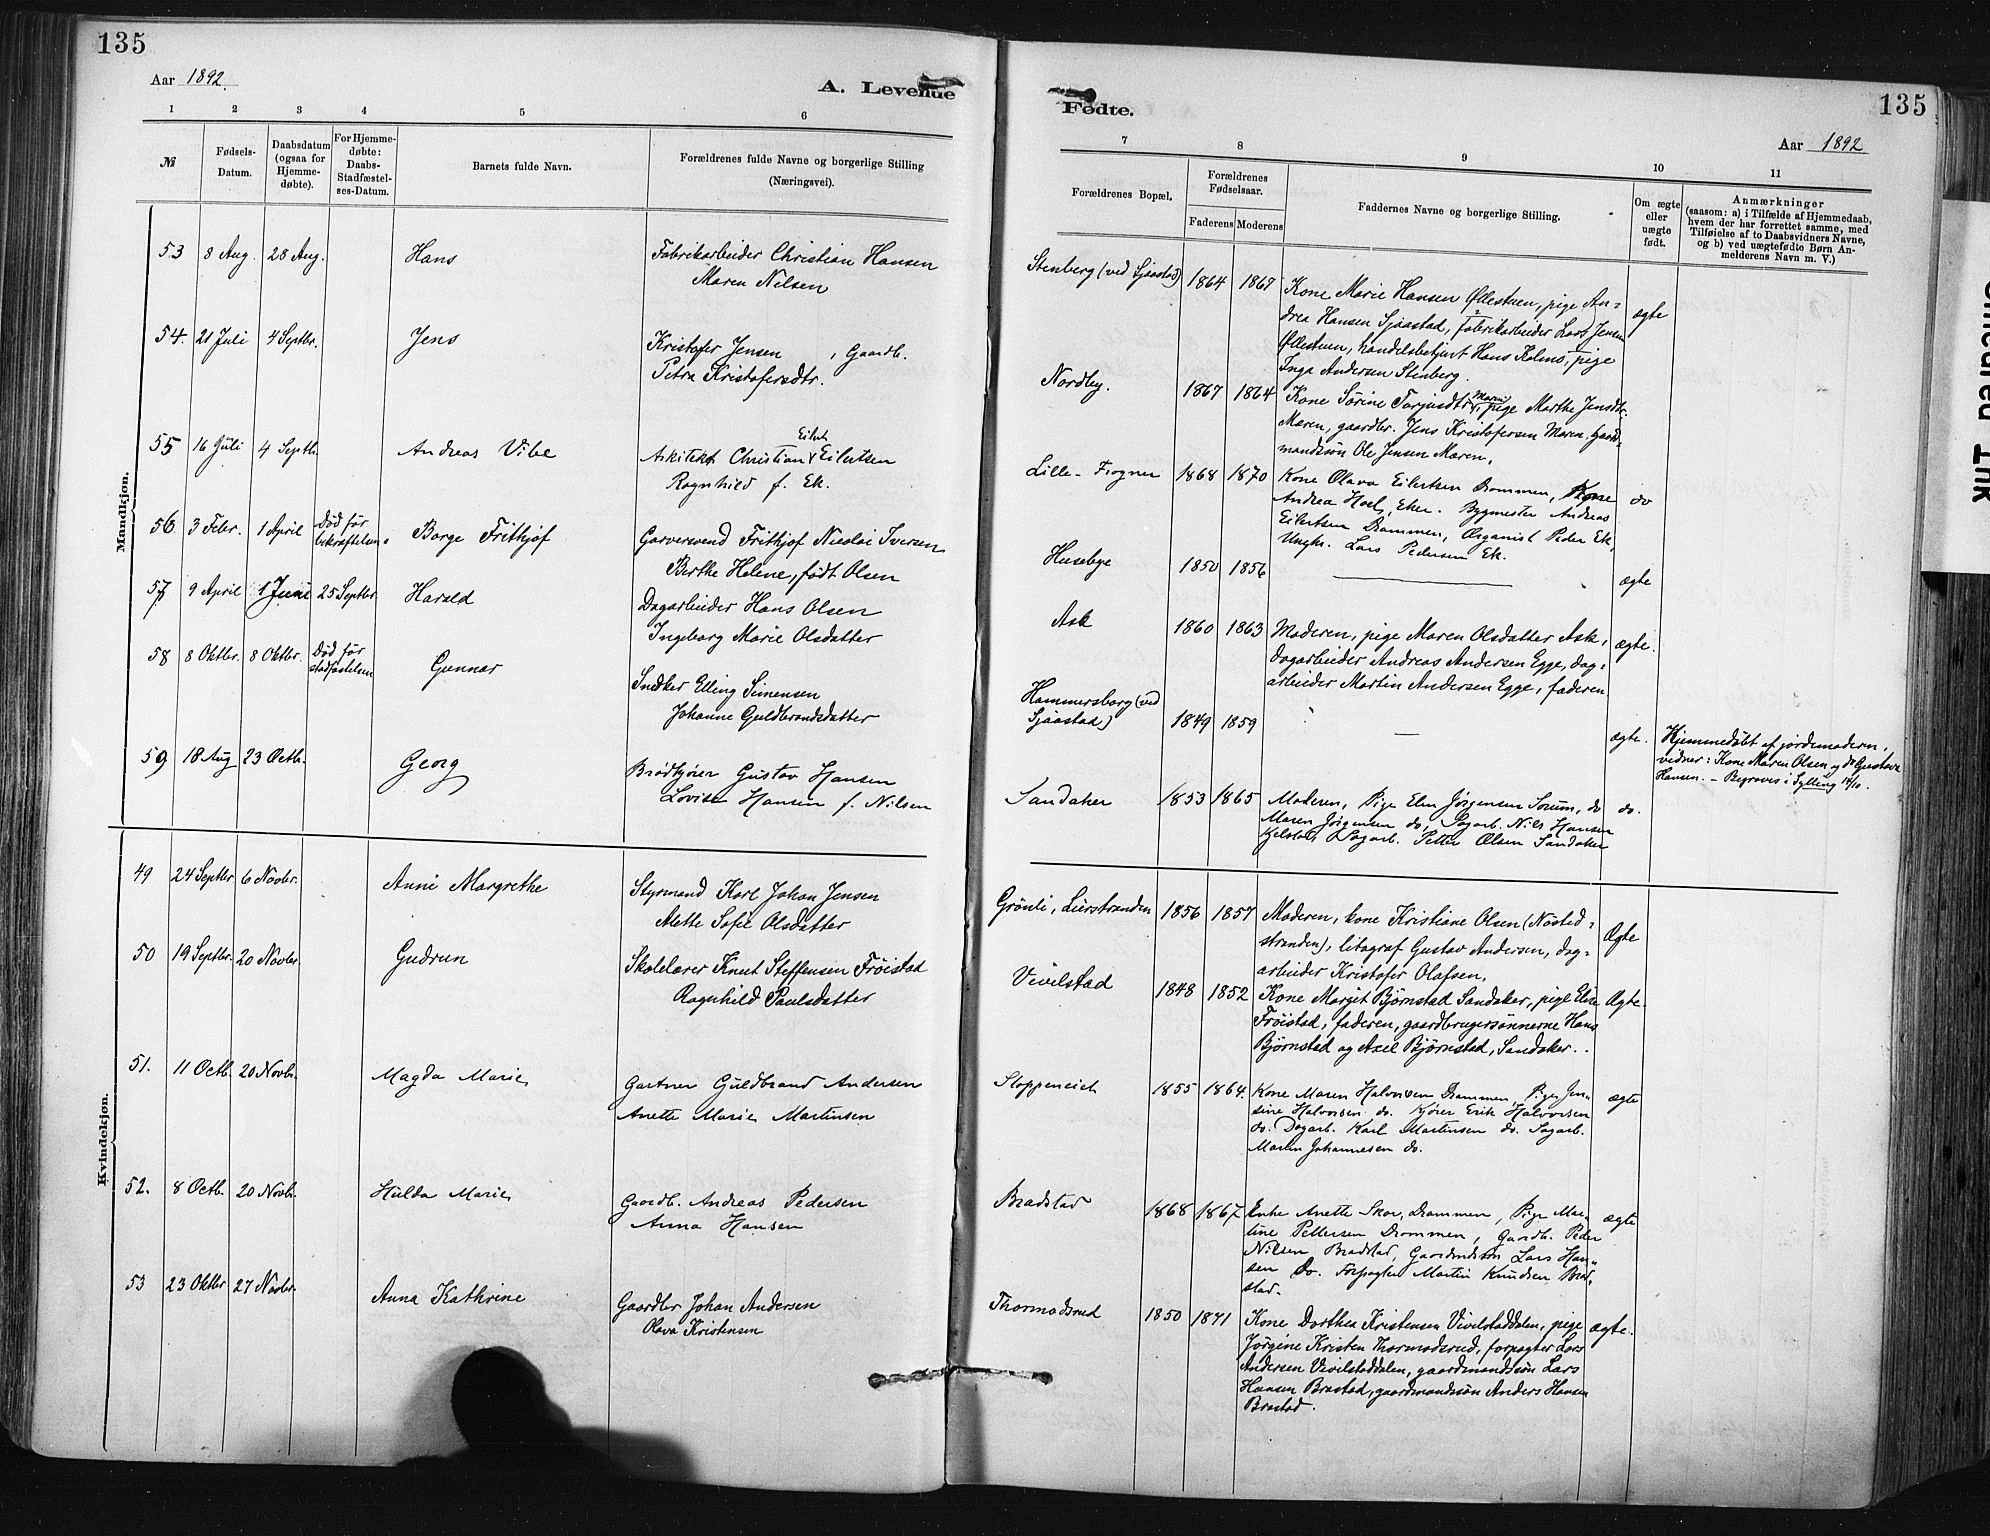 135
Aar 1892.
A. Levende
1 2 3 4 5 6
№
Fødsels-
Datum.
Daabsdatum
(ogsaa for
Hjemme-
døbte).
For Hjemme-
døbte:
Daabs-
Stadfæstel-
ses-Datum.
Barnets fulde Navn.
Forældrenes fulde Navne og borgerlige Stilling
(Næringsvei).
Mandkjøn.
53 8 Aug. 28 Aug. Hans Fabrikarbeider Christian Hansen
Maren Nilsen
54. 21 Juli 4 Septbr. Jens Kristofer Jensen , Gaardb.
Petra Kristofersdtr.
55 16 Juli 4 Septb. Andreas Vibe Arkitekt Christian Eilert Eilertsen
Ragnhild f. Ek.
56 3 Febr. 1 April Død før
bekræftelsen. Borge Frithjof Garversvend Frithjof Nicolai Iversen
Berthe Helene, født Olsen
57 9 April 1 Juni 25 Septbr Harald Dagarbeider Hans Olsen
Ingeborg Marie Olsdatter
58 8 Oktbr. 8 Oktbr. Død før
stadfæstelsen Gunnar Snedker Elling Simensen
Johanne Guldbrandsdatter
59 18 Aug 23 Octb. Georg Brødkjører Gustav Hansen
Lovise Hansen f. Nilsen
Kvindekjøn.
49 24 Septbr 6 Novbr. Anni Margrethe Styrmand Karl Johan Jensen
Alette Sofie Olsdatter
50 19 Septbr. 20 Novbr. Gudrun Skolelærer Knut Steffensen Frøistad
Ragnhild Paulsdatter
51. 11 Octb. 20 Novb. Magda Marie Gartner Guldbrand Andersen
Anette Marie Martinsen
52. 8 Octb. 20 Novb. Hulda Marie Gaardb. Andreas Pedersen
Anna Hansen
53 23 Oktbr 27 Novbr. Anna Kathrine Gaardbr Johan Andersen
Olava Kristensen
135
Fødte.
Aar 1892
7 8 9 10 11
Forældrenes Bopæl.
Forældrenes
Fødselsaar.
Faderens Moderens
Faddernes Navne og borgerlige Stilling.
Om ægte
eller
uægte
født.
Anmærkninger
(saasom: a) i Tilfælde af Hjemmedaab,
hvem der har forrettet samme, med
Tilføielse af to Daabsvidners Navne,
og b) ved uægtefødte Børn An-
melderens Navn m. V.)
Stenberg (ved Sjaastad) 1864 1867 Kone Marie Hansen Øllestuen, pige An-
drea Hansen Sjaastad, fabrikarbeider Lars Jensen
Øllestuen, handelsbetjent Hans Holms, pige
Inga Andersen Stenberg. ægte
Nordby. 1867 1864 Kone Sörine Torjusdtr Maren, pige Marthe Jensdtr.
Maren, gaardbr. Jens Kristofersen Maren, gaard-
mandssøn Ole Jensen Maren.
Lille-Frogner 1868 1870 Kone Olava Eilertsen Drammen, Kone
Andrea Hoel, Eker. Bygmester Andreas
Eilertsen Drammen, Organist Peder Ek,
Ungk. Lars Pedersen Ek. do
Husebye 1850 1856 — ægte
Ask 1860 1863 Moderen, pige Maren Olsdatter Ask,
dagarbeider Andreas Andersen Egge, dag-
arbeider Martin Andersen Egge, faderen ægte.
Hammersborg (ved
Sjaastad) 1849 1859 — ægte. Hjemmedøbt af jordemoderen,
vidner: Kone Maren Olsen og do Gustava
Hansen. – Begraves i Sylling 14/10.
Sandaker 1853 1865 Moderen, Pige Elen Jørgensen Sørum, do
Maren Jørgensen do, Dagarb. Nils Hansen
Kjelstad, Dagarb. Petter Olsen Sandaker do.
Grönli, Lierstranden 1856 1857 Moderen, kone Kristiane Olsen (Nøsted-
stranden), litograf Gustav Andersen, dag-
arbeider Kristofer Olafsen. Ægte
Vivelstad 1848 1852 Kone Margit Bjørnstad Sandaker, pige Elise
Frøistad, faderen, gaardbrugersønnerne Hans
Bjørnstad og Axel Bjørnstad, Sandaker. Ægte.
Sloppeneiet 1855 1864. Kone Maren Halvorsen Drammen, Pige Jen-
sine Halvorsen do. Kjører Erik Halvorsen
do. Dagarb. Karl Martinsen do. Dagarb.
Martin Johannesen do. ægte
Bradstad 1868 1867 Enke Anette Skor, Drammen, Pige Mar-
tine Pettersen Drammen, Gaardb. Peder
Nilsen Bradstad, Gaardmdssøn Lars Han-
sen Do. Forpagter Martin Knudsen Brad-
stad. ægte
Thormodsrud 1850 1871 Kone Dorthea Kristensen Vivilstaddalen, pige
Jörgine Kristen Thormodsrud, forpagter Lars
Andersen Vivilstaddalen, gaardmandssøn Lars
Hansen Brastad, gaardmandssøn Anders Hansen
Brastad. ægte.